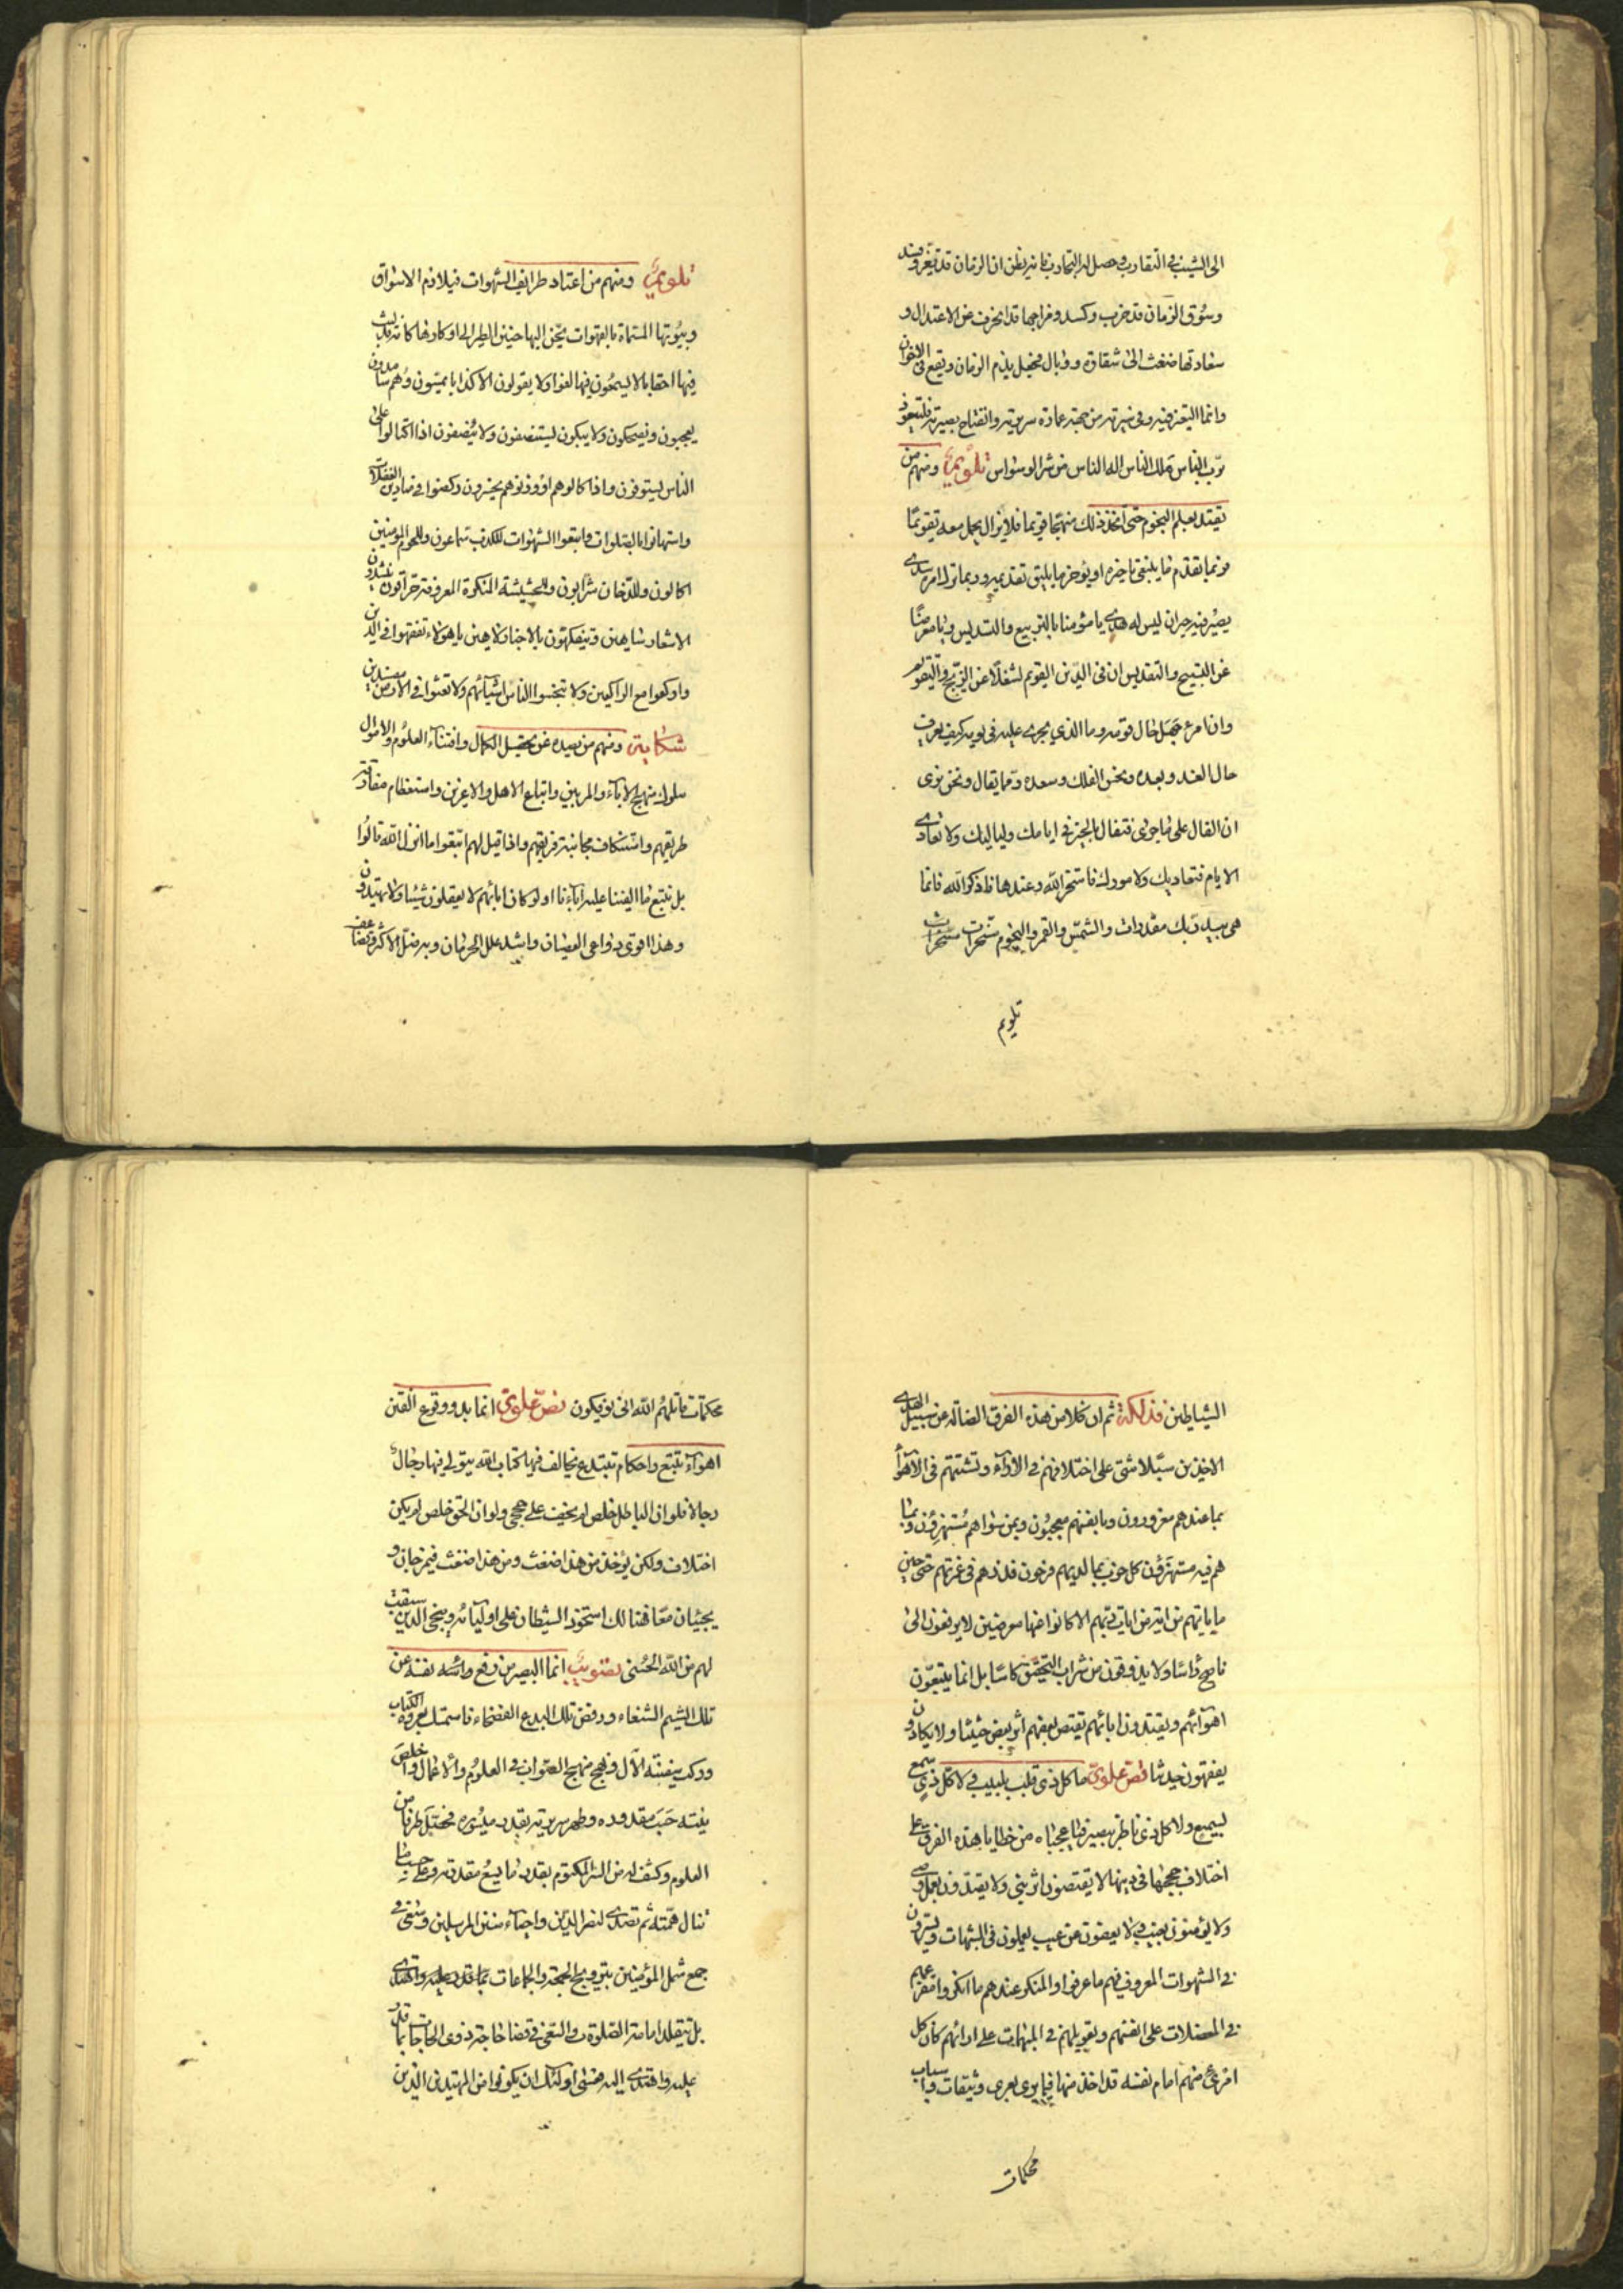 الى الشيب في التقارب وحصل له التجارب فانه يظن ان الزمان قد تغير وفسد
وسوق الزمان قد خرب وكسد ومزاجها قد انحرف عن الاعتدال و
سعادتها ضغث الى شقاوة ووبال فيخيل يذم الزمان ويقع في الاخوان
وانما التغير فيه وفي نيته من جهة عادة سريرته وانفتاح بصيرته فليتعوذ
برب الناس ملك الناس اله الناس من شر الوسواس تلويم ومنهم من
يعتد بعلم النجوم حتى اتخذ ذلك منهجا قويما فلا يزال يحمل معه تقويما
فربما تقدم ما ينبغي تاخيره او يؤخر ما يليق تقديمه وربما تراه امر سدى
يصير فيه حيران ليس له هدى يا مؤمنا بالتربيع والتسديس ويا معرضا
عن التسبيح والتقديس ان في الدين القويم لشغلا عن الزيج والتقويم
وان امرء جهل حال قومه وما الذي يجرى عليه في يومه كيف يعرف
حال الغد وبعده ونحس الفلك وسعده ومما يقال ونحن نرى
ان الفال على ما جرى فتفال بالخير في ايامك ولياليك ولا تعادى
الايام فتعاديك ولامورك فاستخر الله وعندها فاذكر الله فانما
هي بيد ربك مقدرات والشمس والقمر والنجوم مسخرات
تلويم
تلويم ومنهم من اعتاد طرايف الشهوات فيلازم الاسواق
وبيوتها المسماة بالقهوات يحن اليها حنين الطير الى اوكارها كانه قد لبث
فيها احقابا لا يسمعون فيها لغوا ولا يقولون الا كذابا يمسون وهم سامدون
يعجبون ويضحكون ولا يبكون يستنصفون ولا ينصفون اذا اكتالوا على
الناس يستوفون واذا كالوهم او وزنوهم يخسرون ركضوا في ميادين الغفلات
واستهانوا بالصلوات واتبعوا الشهوات للكذب سماعون وللحوم المؤمنين
اكالون وللدخان شرابون وللحشيشة المنكرة المعروفة حراقون ينشدون
الاشعار شاهين ويتفكهون بالاخبار لاهين يا هؤلاء تفقهوا في الدين
واركعوا مع الراكعين ولا تبخسوا الناس اشياءهم ولا تعثوا في الارض مفسدين
شكاية ومنهم من يصده عن تحصيل الكمال واقتناء العلوم والاموال
سلوك منهج الاباء والمربين واتباع الاهل والاقربين واستعظام مفارقة
طريقهم واستنكاف مجانبة فريقهم واذا قيل لهم اتبعوا ما انزل الله قالوا
بل نتبع ما الفينا عليه آباءنا اولو كان اباؤهم لا يعقلون شيئا ولا يهتدون
وهذا اقوى دواعى العصيان واشد علل الحرمان وبه ضل الاكثر
الشياطين فذلكة ثم ان كلا من هذه الفرق الضالة عن سبيل الهدى
الاخذين سبلا شتى على اختلافهم في الاراء وتشتتهم في الاهواء
بما عندهم مغرورون وبانفسهم معجبون وبمن سواهم مستهزؤن وبما
هم فيه مستهزؤن كل حزب بما لديهم فرحون فذرهم في غمرتهم حتى حين
ما ياتيهم من اية من ايات ربهم الا كانوا عنها معرضين لا يرفعون الى
ناصح راسا ولا يذوقون من شراب التحقيق كاسا بل انما يتبعون
اهوائهم ويقتدون ابائهم يقتص بعضهم اثر بعض حثيثا ولا يكادون
يفقهون حديثا نص علوى ما كل ذى قلب بلبيب ولا كل ذى سمع
بسميع ولا كل ذى ناظر ببصير فيا عجباه من خطايا هذه الفرق على
اختلاف حججها في دينها لا يقتصون اثر نبى ولا يقتدون بعمل وصى
ولا يؤمنون بغيب ولا يعفون عن عيب يعملون في الشبهات ويسيرون
في الشهوات المعروف فيهم ما عرفوا والمنكر عندهم ما انكروا مفزعهم
في المعضلات على انفسهم وتعويلهم في المبهمات على ارائهم كان كل
امرئ منهم امام نفسه قد اخذ منها فيما يرى بعرى وثيقات واسباب
محكمات
محكمات قاتلهم الله انى يؤفكون نص علوى انما بدو وقوع الفتن
اهواء تتبع واحكام تبتدع يخالف فيها كتاب الله يتولى فيها رجال
رجالا فلو ان الباطل خلص لم يخف على ذى حجى ولو ان الحق خلص لم يكن
اختلاف ولكن يؤخذ من هذا ضغث ومن هذا ضغث فيمزجان و
يجيئان معا فهنالك استحوذ الشيطان على اوليائه وينجى الذين سبقت
لهم من الله الحسنى تصويب انما البصير من رفع رأسه نفسه عن
تلك الشيم الشنعاء ورفض تلك البدع الفضحاء فاستمسك بعروة الكتاب
وركب سفينة الآل ونهج منهج الصواب في العلوم والاعمال واخلص
نيته حسب مقدوره وطهر سريرته بقدر ميسوره فحصل طرفا من
العلوم وكشف له من السر المكتوم بقدر ما يسع مقدرته وعلى حسب ما
تنال همته ثم تصدى لنصر الدين واحياء سنن المرسلين وسعى في
جمع شمل المؤمنين بترويج الجمعة والجماعات بما قدر عليه واهتدى
بل بتقلد امامة الصلوة والسعى في قضا حاجة ذوى الحاجات بما قدر
عليه واهتدى اليه فعسى اولئك ان يكونوا من المهتدين الذين